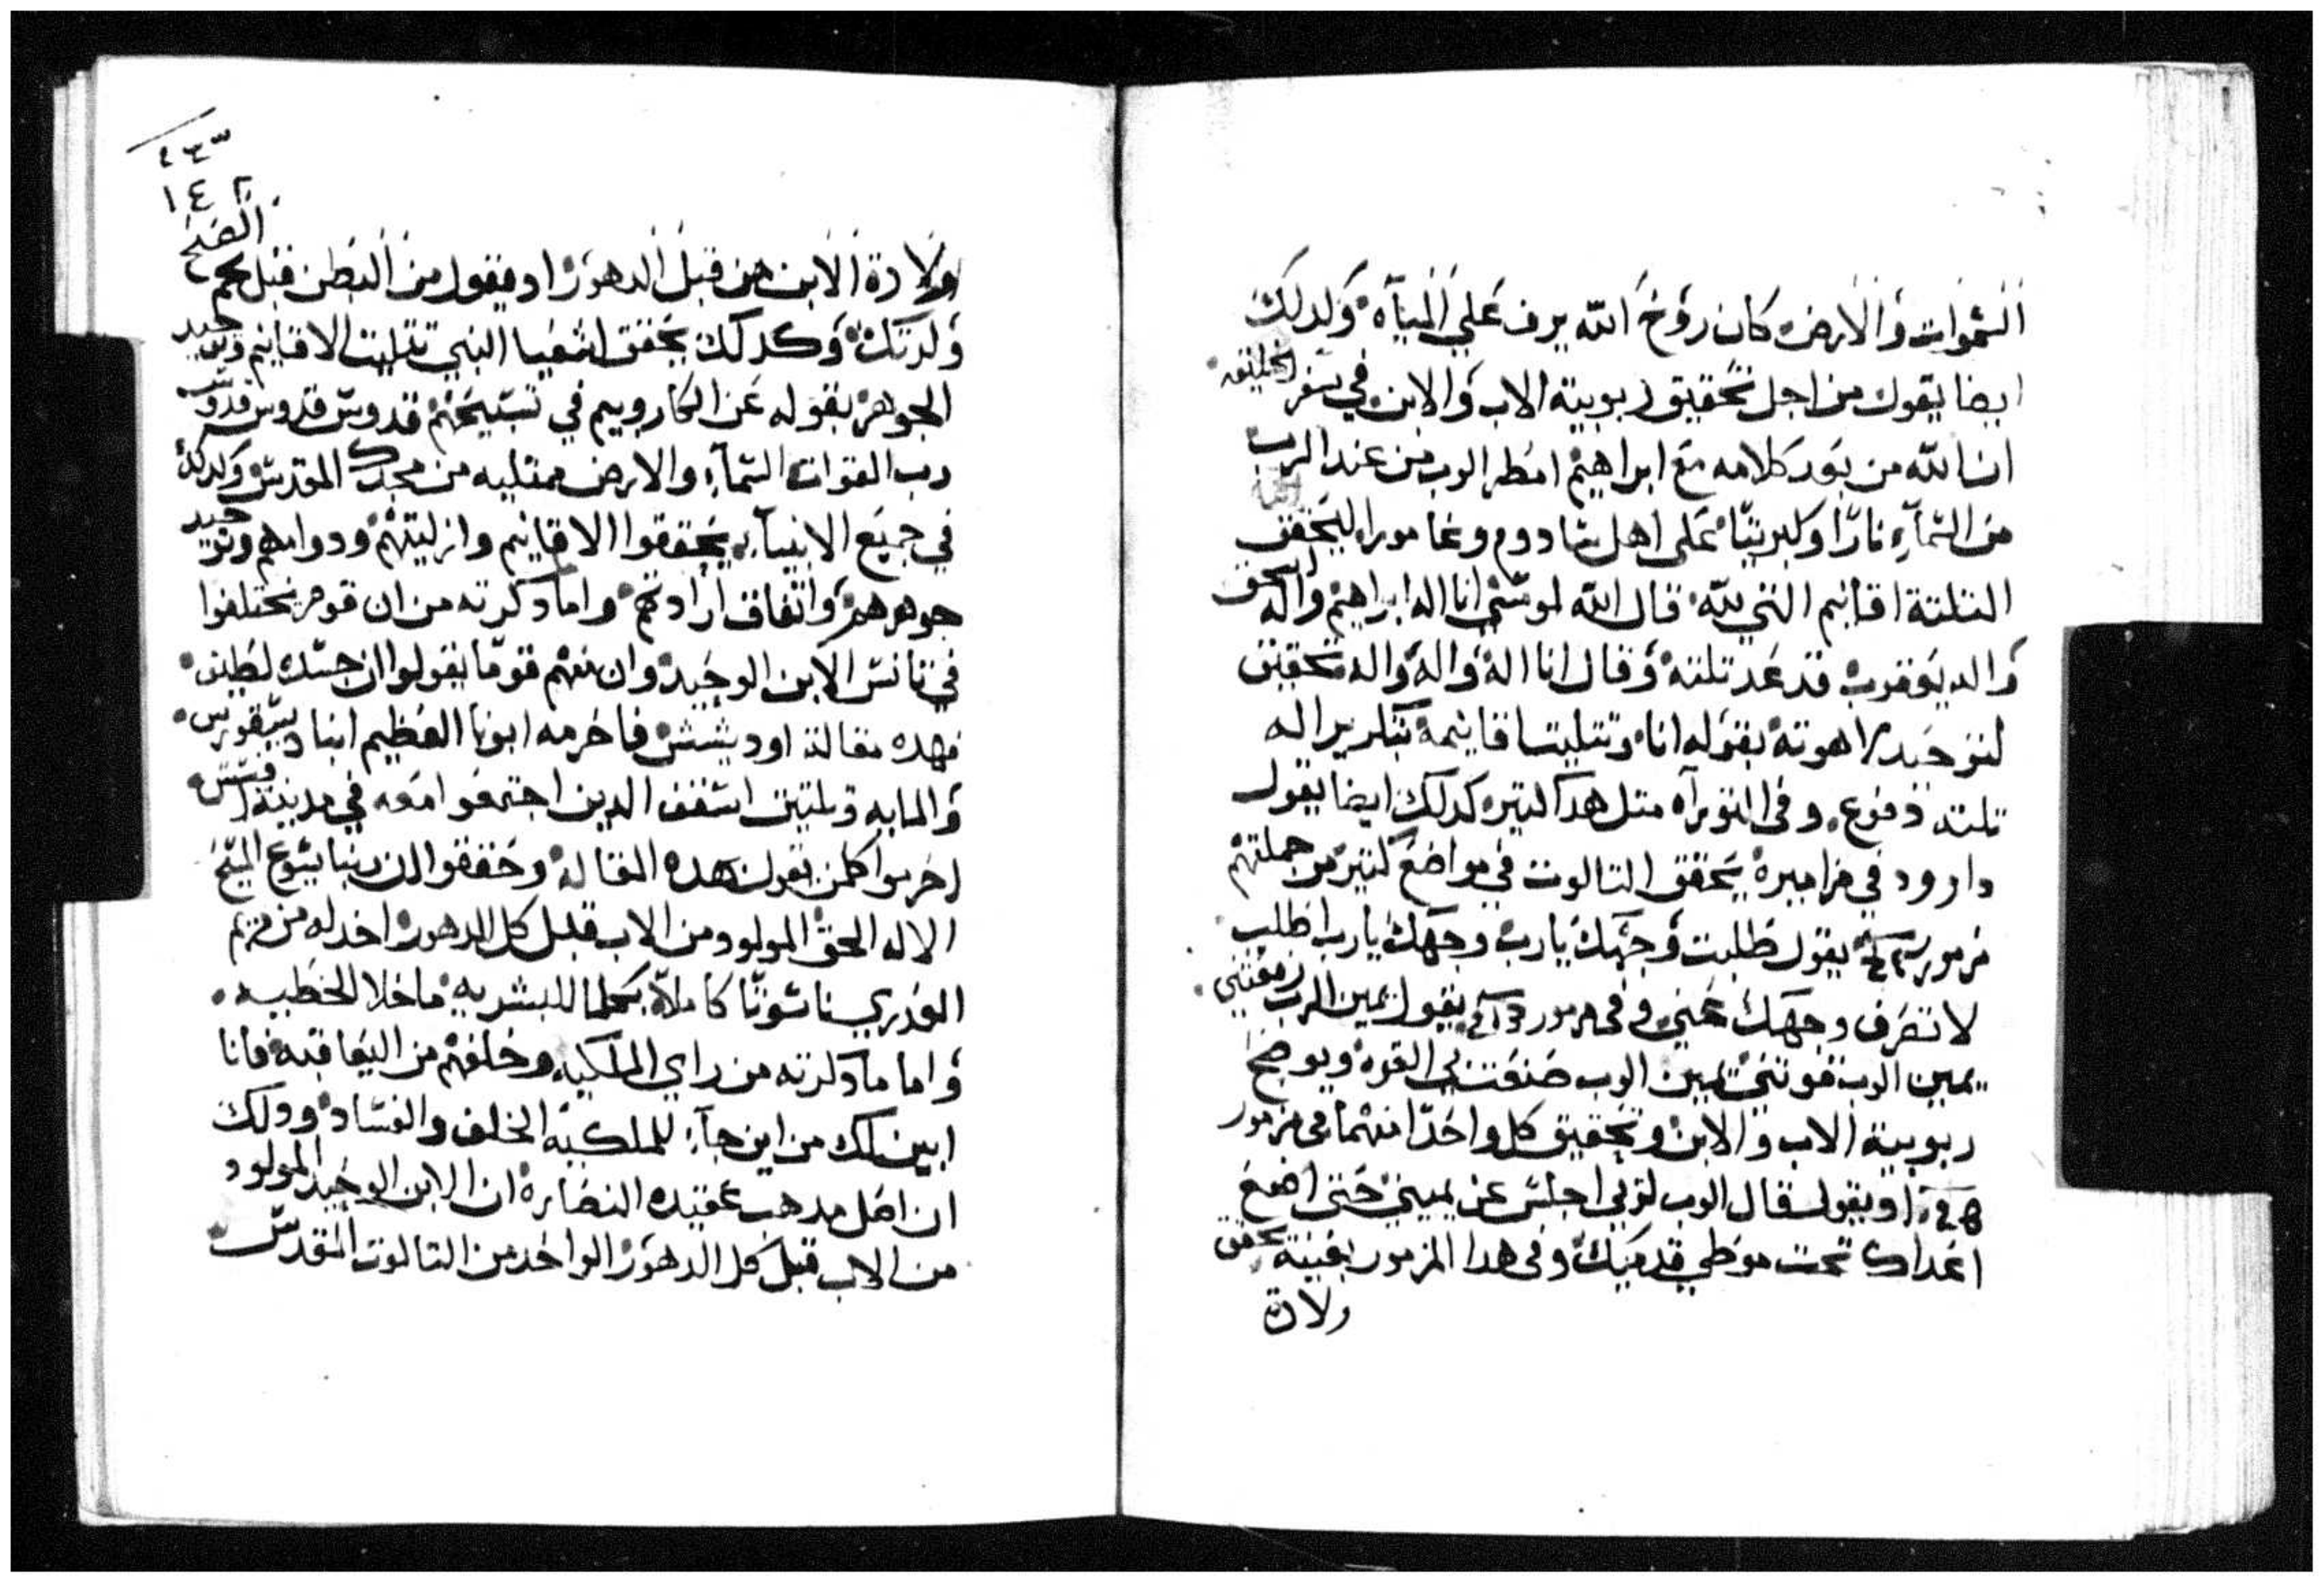 السموات والارض كان روح الله يرف علي المياه ولدلك
ايضا يقول من اجل تحقيق ربوبية الاب والابن في سفر الخليقه
ان الله من بعد كلامه مع ابراهيم امطر الرب من عند الرب
من السماء نارا وكبريتا علي اهل سادوم وغامورا ليحقق
التلتة اقانيم التي لله قال الله لموسي انا اله ابراهيم واله اسحق
واله يعقوب قد عد تلته وقال انا اله واله واله تحقيق
لتوحيد لاهوته بقوله انا وتتليت اقانيمة بتكرير اله
تلته دفوع وفي التوراه متل هدا كتير كدلك ايضا يقول
داوود في مزاميره يحقق التالوت في مواضع كتير من جملتهم
مزمور يقول طلبت وجهك يارب وجهك يارب اطلب
لا تصرف وجهك عني وفي مزمور يقول يمين الرب رفعتني
يمين الرب قوتني يمين الرب صنعت لي القوه ويوضح
ربوبية الاب والابن وتحقيق كل واحدا منهما في مزمور
ويقول قال الرب لربي اجلس عن يميني حتي اضع
اعداك تحت موطي قدميك وفي هدا المزمور بعينة يحقق
ولادة
١٤٢
ولادة الابن من قبل الدهور اد يقول من البطن قبل نجم الصبح
ولدتك وكدلك يحقق اشعيا النبي تتليت الاقانيم وتوحيد
الجوهر بقوله عن الكاروبيم في تسبيحهم قدوس قدوس قدوس
رب القوات السماء والارض ممتليه من مجدك المقدس وكدلك
في جميع الانبياء يحققوا الاقانيم وازليتهم ودوامهم وتوحيد
جوهرهم واتفاق ارادتهم واما دكرته من ان قوم يختلفوا
في تانس الابن الوحيد وان منهم قوما يقولوا ان جسده لطيف
فهده مقالة اوديشش فاحرمه ابونا العظيم انبا ديسقورس
والمايه وتلتين اسقف الدين اجتمعوا معه في مدينة افسس
احرموا كلمن يقول هده المقالة وحققوا ان ربنا يسوع المسيح
الاله الحق المولود من الاب قبل كل الدهور اخد له من مريم
العدري ناسوتا كاملا بكلما للبشريه ماخلا الخطيه
واما مادكرته من راي الملكيه وخلفهم من اليعاقبه فانا
ابين لك من اين جاء للملكية الخلف والفساد ودلك
ان اصل مدهب عقيده النصاره ان الابن الوحيد المولود
من الاب قبل كل الدهور الواحد من التالوت المقدس